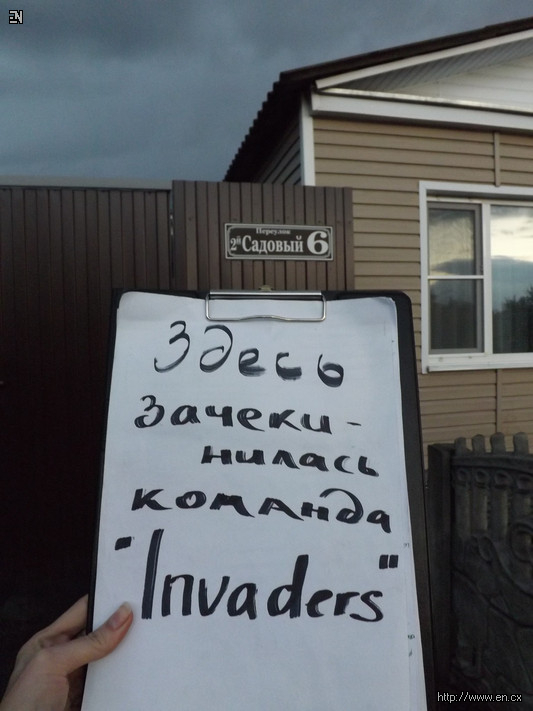 EN
Переулок
2й Садовый 6
Здесь
зачеки-
нилась
команда
"Invaders"
http://www.en.cx